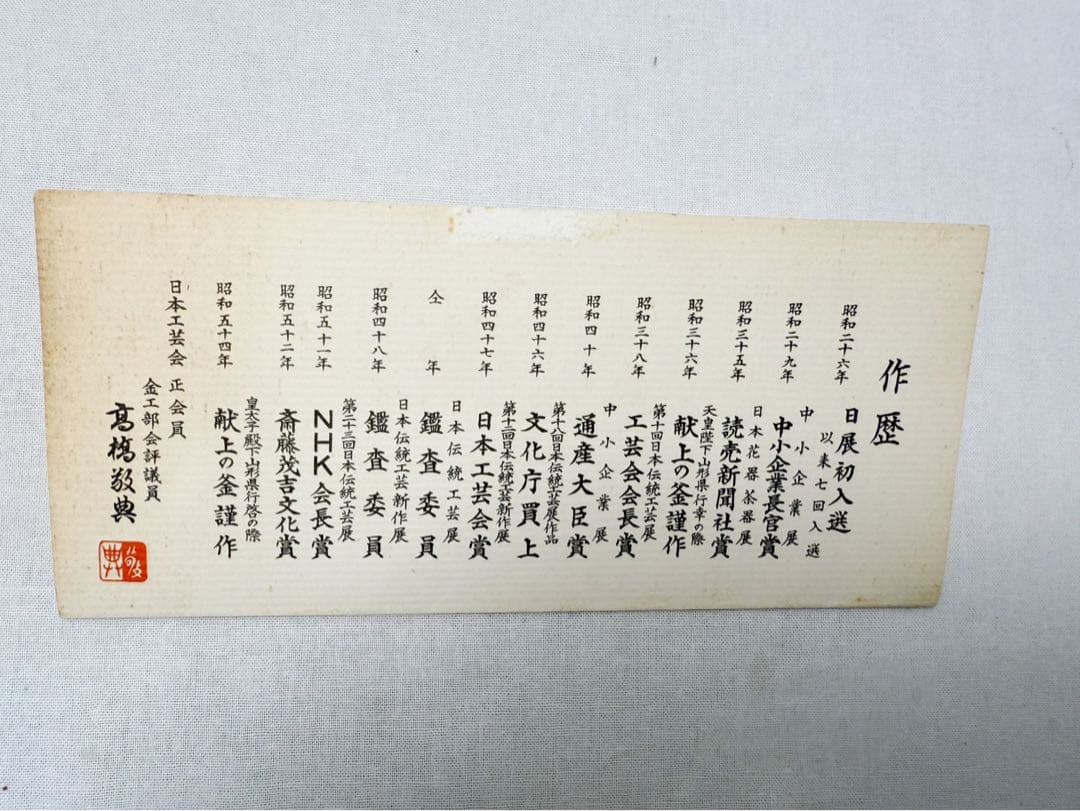 作歴
昭和二十六年 日展初入選
以来七回入選
昭和二十九年 中小企業展
中小企業長官賞
昭和三十五年 日本花器茶器展
読売新聞社賞
昭和三十六年 天皇陛下山形県行幸の際
献上の釜謹作
昭和三十八年 第十回日本伝統工芸展
工芸会会長賞
昭和四十年 中小企業展
通産大臣賞
昭和四十六年 第十八回日本伝統工芸展作品
文化庁買上
昭和四十七年 第十二回日本伝統工芸新作展
日本工芸会賞
仝年 日本伝統工芸展
鑑査委員
昭和四十八年 日本伝統工芸新作展
鑑査委員
昭和五十一年 第二十三回日本伝統工芸展
NHK会長賞
昭和五十二年 斎藤茂吉文化賞
昭和五十四年 皇太子殿下山形県行啓の際
献上の釜謹作
日本工芸会正会員
金工部会評議員
高橋敬典
敬典